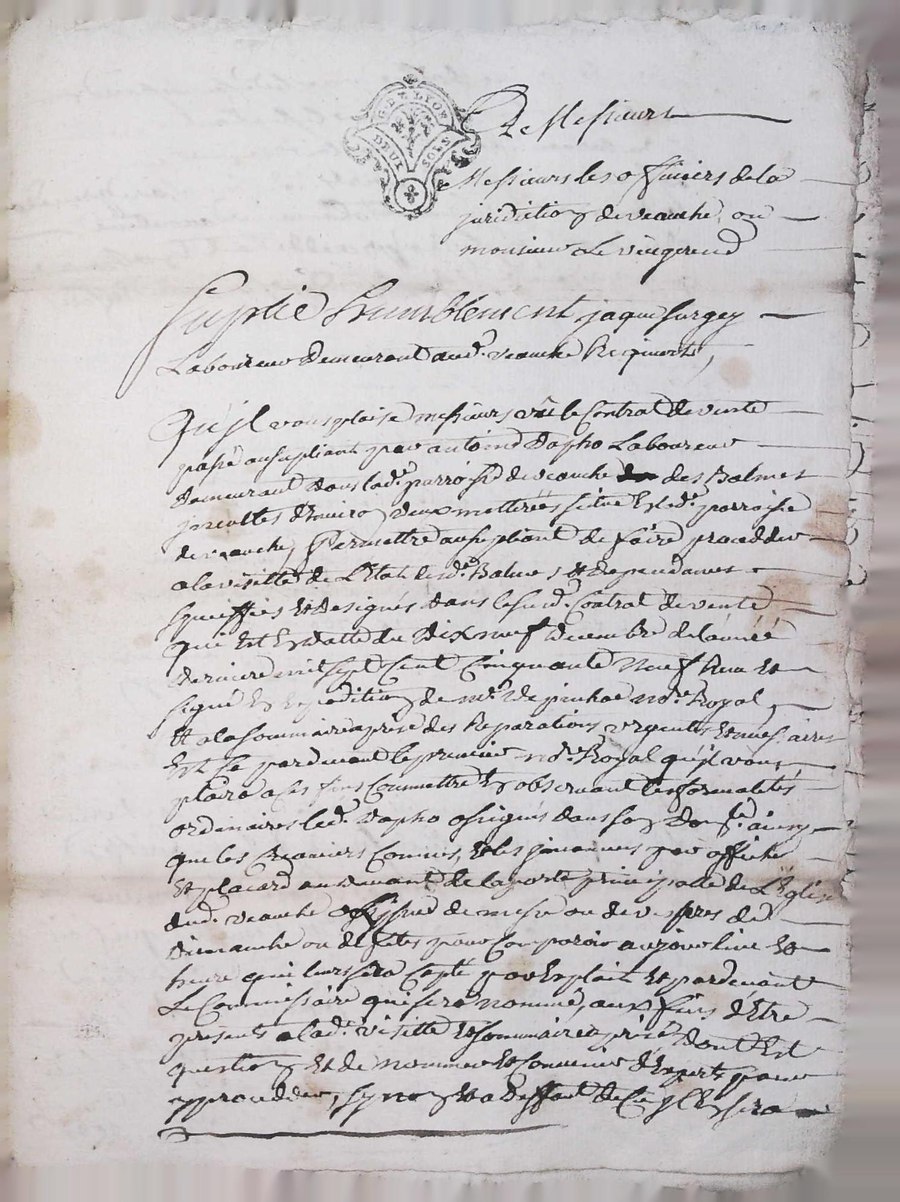 G.D. LYON
DEUX SOLS
De Messieurs
Messieurs les officiers de la
juridiction de veauche, ou
monsieur Le
Suplie humblement jaque surgey
Laboureur demeurant aud. veauche
Qu'jl vous plaise messieurs vû le Contrat de vente
passé au supliant par antoine Dapho Laboureur
demeurant dans lad. parroisse de veauche des Balmes
jncultes d'Environ deux metterées situé En lad. parroisse
de veauche, Permettre au supliant de faire procedder
a la visitte de L'Etat desd. Balmes et dependances
speciffiés Et designés dans le susd. Contrat de vente
qui Est En datte du Dix neuf decembre de L'année
derniere mil sept Cent Cinquante Neuf Reçu Et
signé En Expedition de me. De nre. Royal,
Et a la sommaire aprise des Reparations urgentes Et necessaires
Est Ce pardevant le premier nre. Royal qu'jl vous
plaira a ces fins Commettre En observant les formalités
ordinaires led. Dapho assigné dans son
que les Creanciers Connus, Et les jnconnus par affiche
Et placard au devant de la porte principalle de L'Eglise
dud. veauche a L'issue de messe ou de vespres de
Dimanche ou de fetes pour Comparoir au jour lieu Et
heure qui leur sera Cotté par Exploit Et pardevant
Le Commissaire qui sera nommé, aux fins d'Etre
presents a lad. visitte Et sommaire aprise dont Est
question Et de nommer Et Convenir d'Experts pour
y procedder, sinon Et a Deffaut de Ce jl En sera